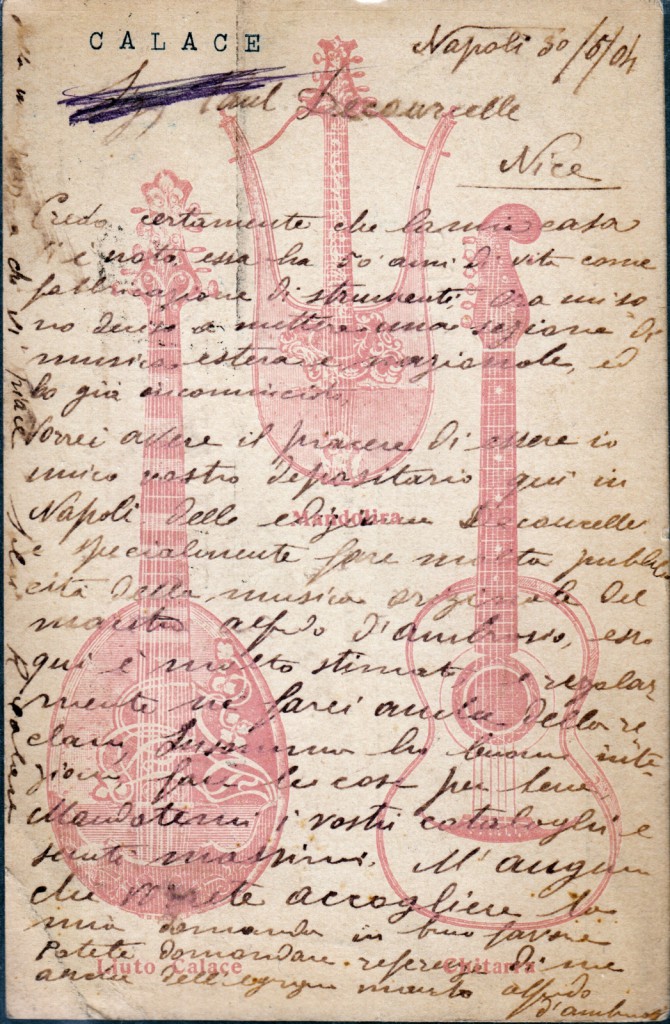 CALACE
Napoli 30/5/04
Paul Decourcelle
Nice
Credo certamente che la mia casa
vi è noto, essa ha 50 anni di vita come
fabbricazione di strumenti, ora mi so
no deciso a mettere una sezione di
musica estera e nazionale, ed
ho già incominciato,
Vorrei avere il piacere di essere io
unico vostro depositario qui in
Napoli delle edizioni Decourcelle
e specialmente fare molta pubbli
cità della musica originale del
maestro alfredo d'ambrosio, esso
qui è molto stimato e regolar
mente ne farei anche della re
clam, Insomma ho buone inte
zioni fare le cose per bene
Mandatemi i vostri cataloghi e
sconti massimi. M'auguro
che vorrete accogliere la
mia domanda in buo favore
Potete domandare referenze di me
anche dell'egregio maestro alfredo
d'ambrosio
Mandolira
Liuto Calace
Chitarra